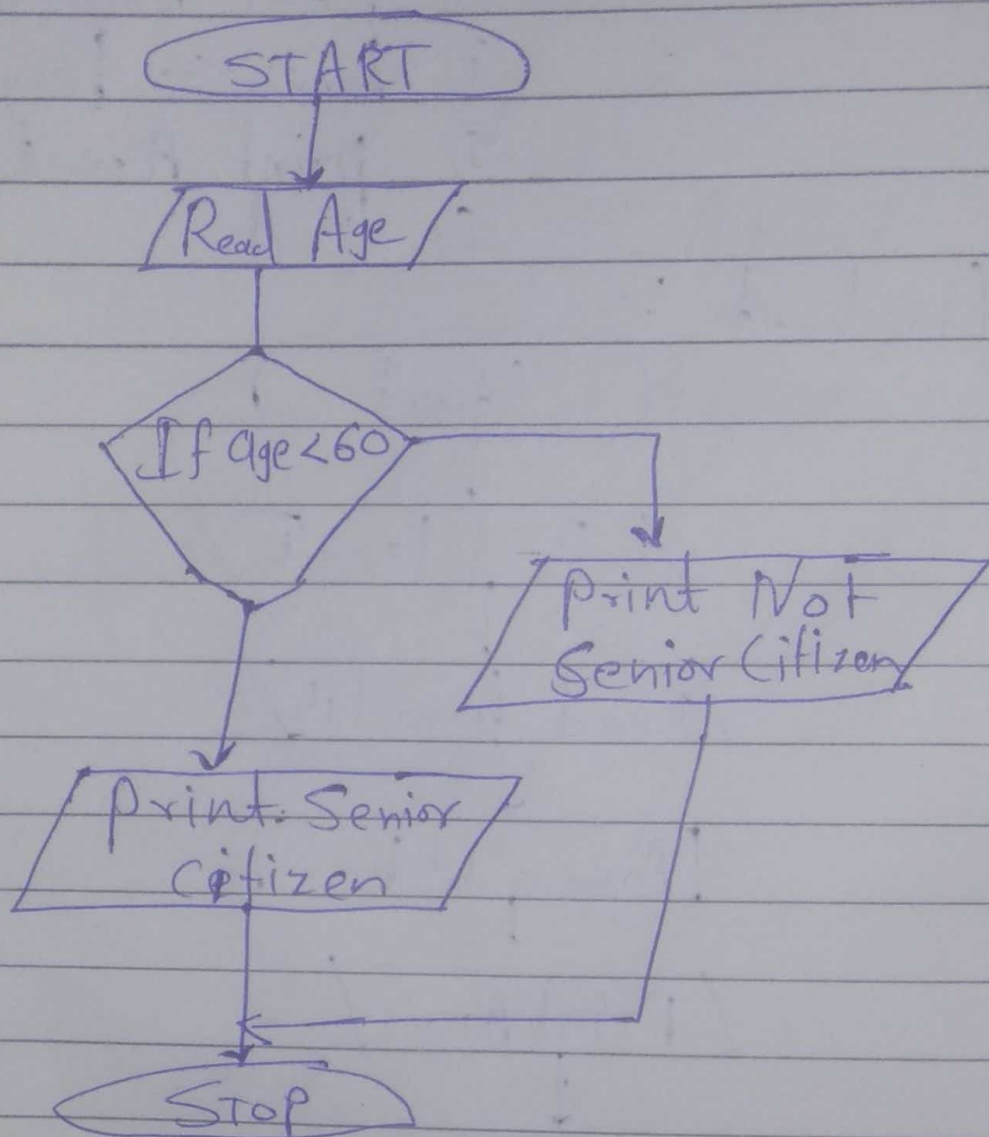 START
Read Age
If age<60
Print Not
Senior Citizen
Print Senior
Citizen
STOP